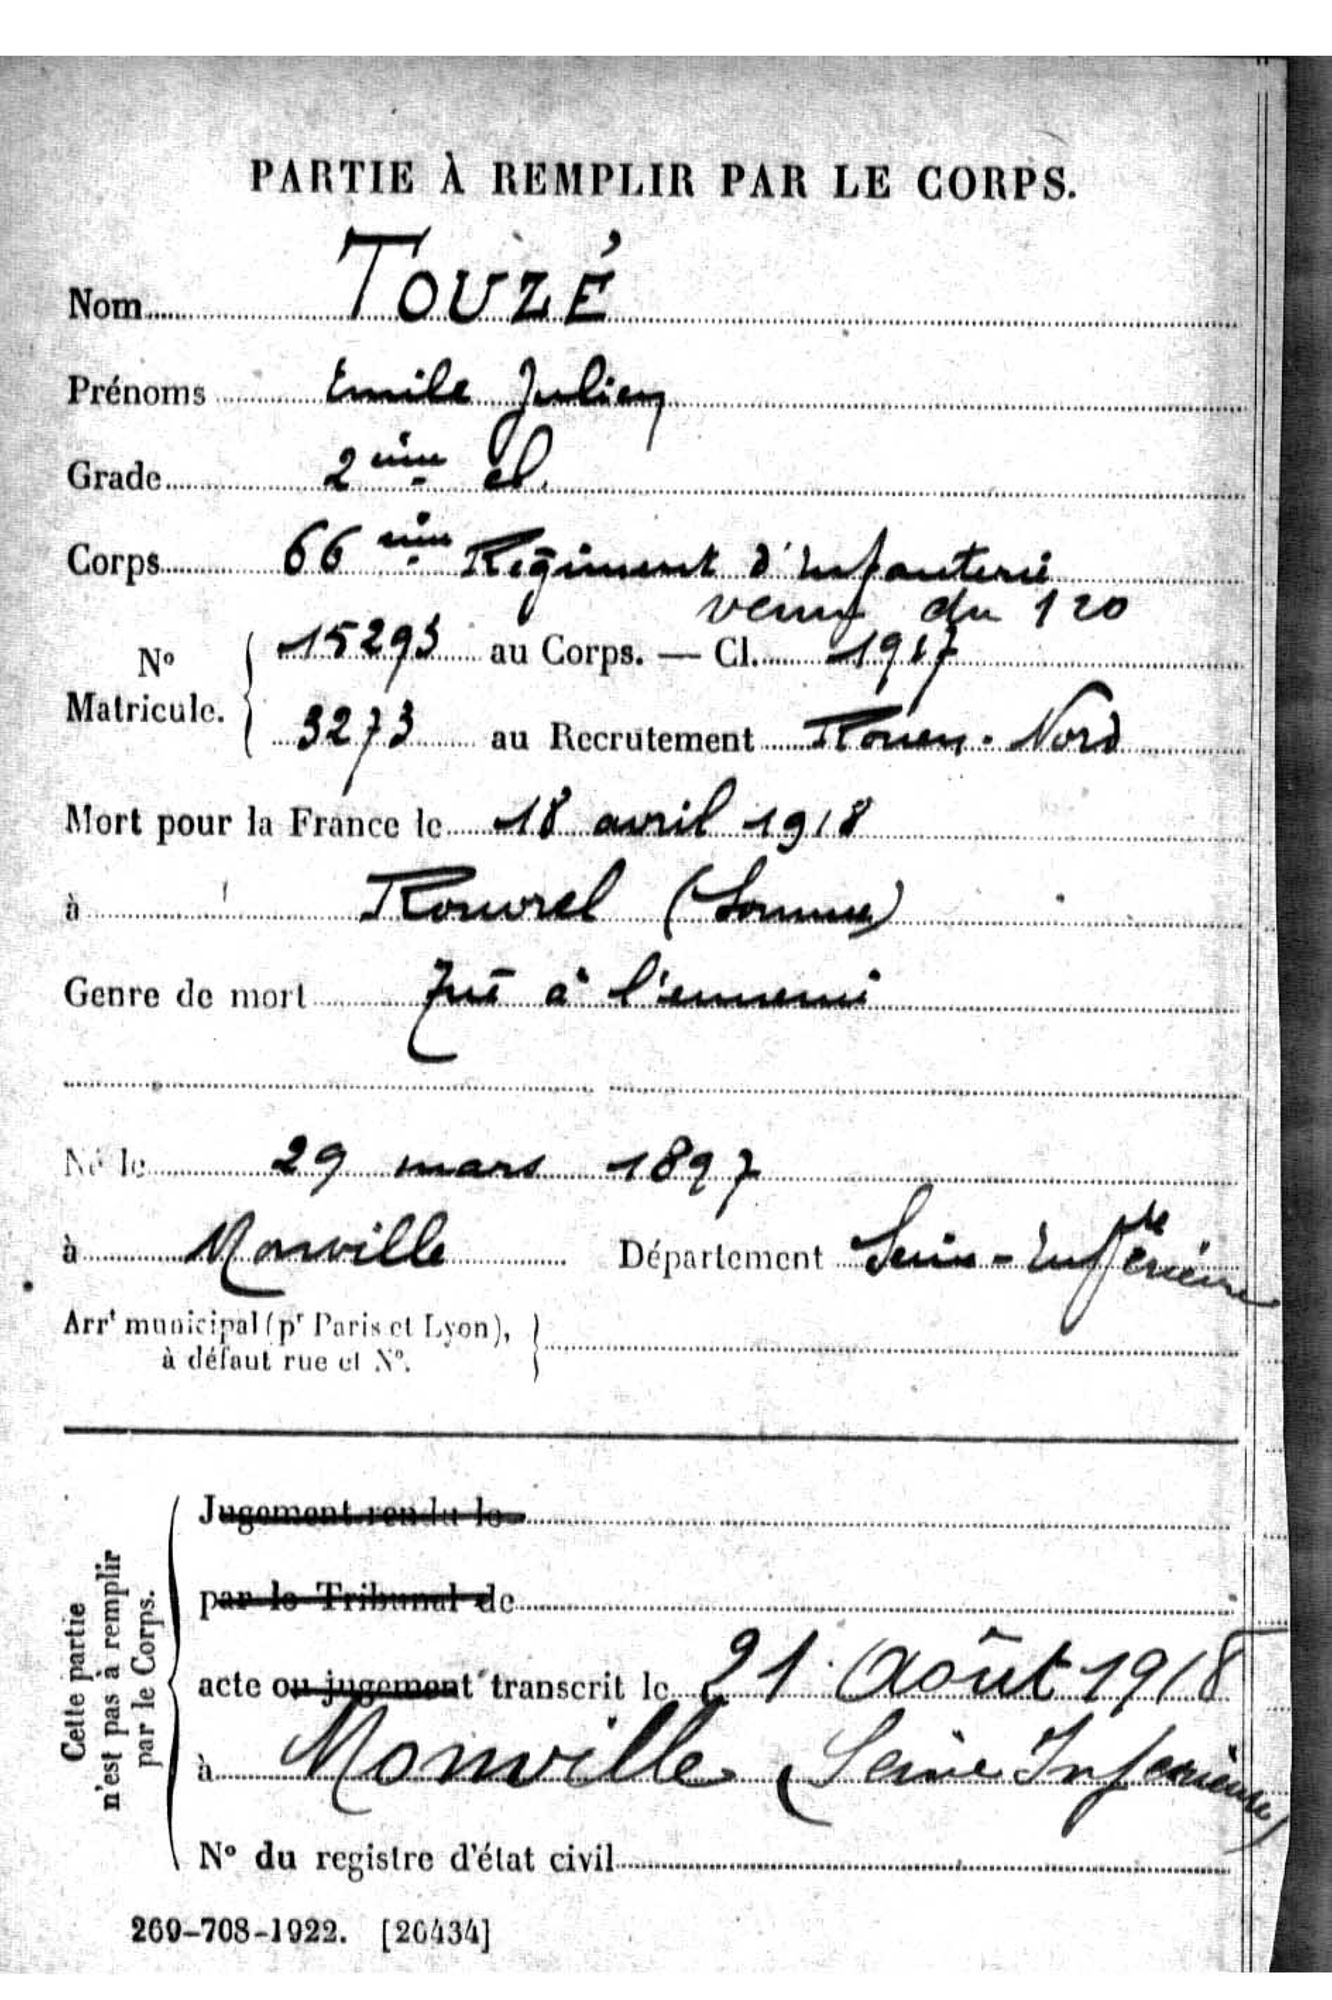 PARTIE À REMPLIR PAR LE CORPS.
Nom TOUZÉ
Prénoms Emile Julien
Grade 2ème cl.
Corps 66ème Régiment d'Infanterie
venu du 120
N° Matricule. 15293 au Corps. — Cl. 1917
3273 au Recrutement Rouen-Nord
Mort pour la France le 18 avril 1918
à Rouvrel (Somme)
Genre de mort Tué à l'ennemi
Né le 29 mars 1897
à Monville Département Seine-Inférieure
Arrt municipal (pr Paris et Lyon),
à défaut rue et N°.
Cette partie
n'est pas à remplir
par le Corps.
Jugement rendu le
par le Tribunal de
acte ou jugement transcrit le 21 Août 1918
à Monville (Seine Inférieure)
N° du registre d'état civil
269-708-1922. [26434]